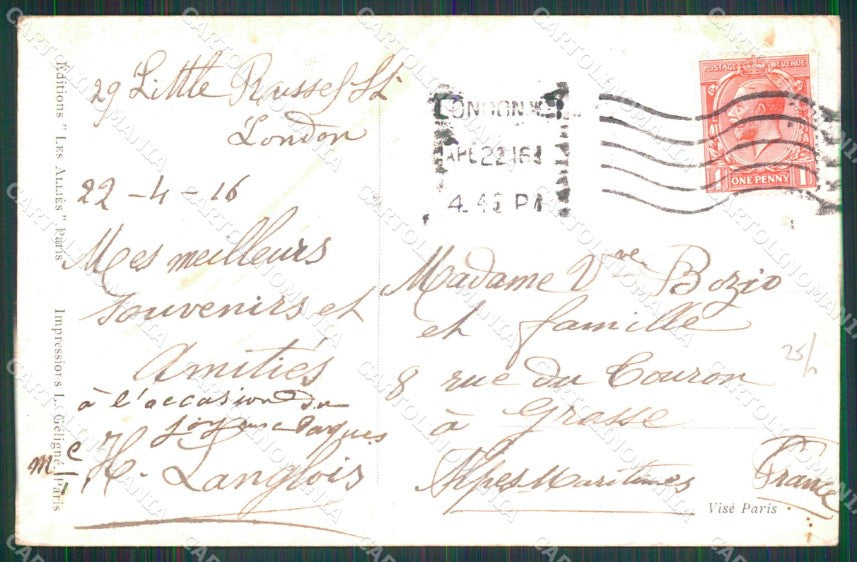 29 Little Russel St
London
22-4-16
Mes meilleurs
souvenirs et
Amitiés
à l'occasion du
joyeuse Paques
Me H. Langlois
Editions " LES ALLIÉS " Paris
Impressions L. Géligné, Paris
LONDON. W.
APR 22 16
4.45 PM
POSTAGE REVENUE
1 ONE PENNY 1
Madame Vve Bozio
et famille
8 rue du Couron
à Grasse
Alpes Maritimes France
25/
Visé Paris
CARTOLINOMANIA